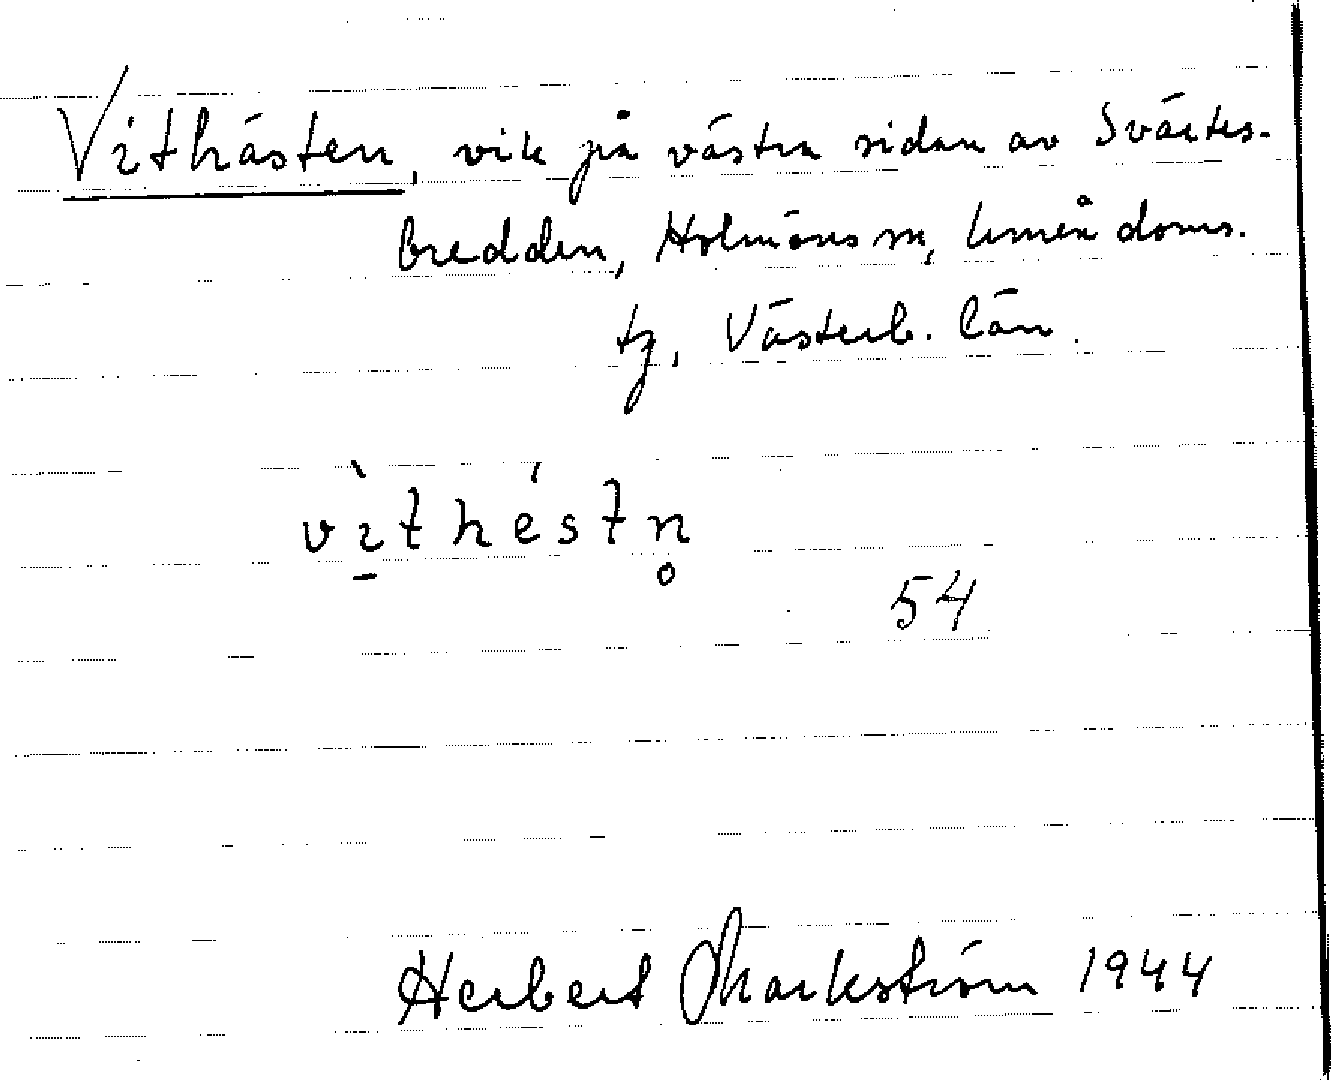 Vithästen, vik på västra sidan av Svärtes-
bredden, Holmöns sn, Umeå doms.
tg, Västerb. län.
vìthéstn̥
54
Herbert Markström 1944